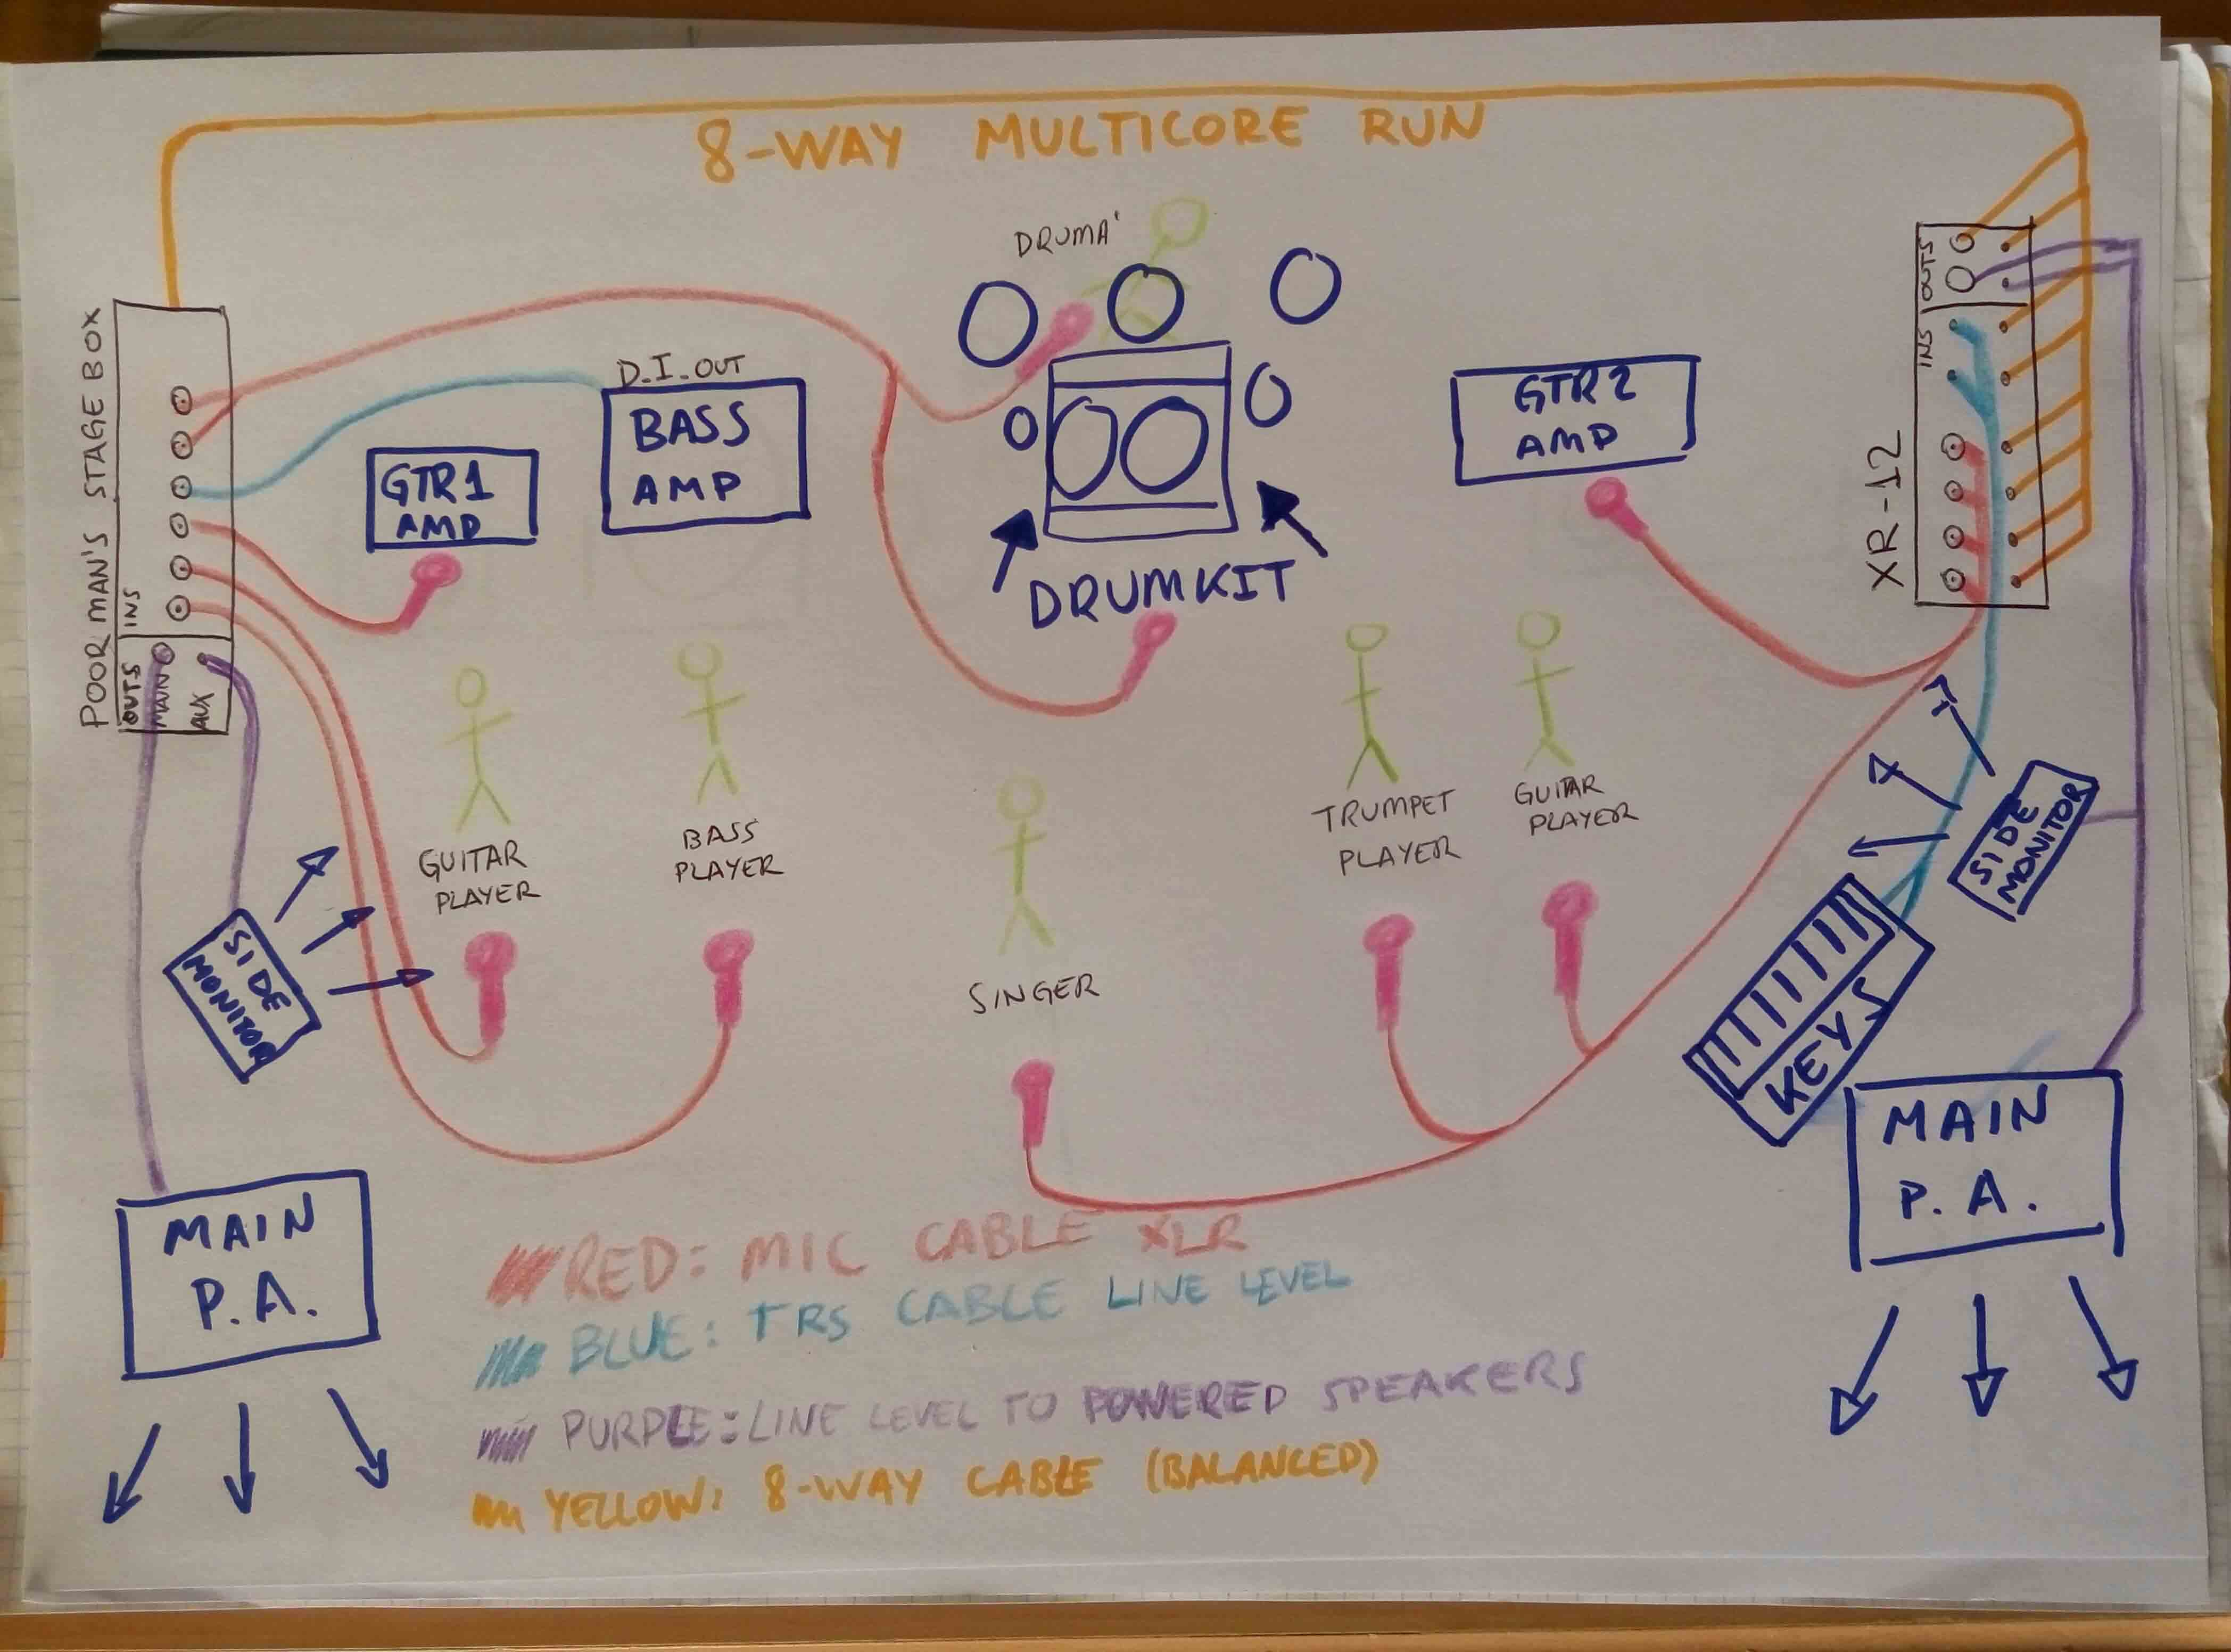 8-WAY MULTICORE RUN
DRUMA'
POOR MAN'S STAGE BOX
INS
OUTS
MAIN
AUX
D.I. OUT
BASS
AMP
GTR1
AMP
GTR2
AMP
DRUMKIT
OUTS
INS
XR-12
GUITAR
PLAYER
BASS
PLAYER
SINGER
TRUMPET
PLAYER
GUITAR
PLAYER
SIDE
MONITOR
SIDE
MONITOR
KEYS
MAIN
P.A.
MAIN
P.A.
RED: MIC CABLE XLR
BLUE: TRS CABLE LINE LEVEL
PURPLE: LINE LEVEL TO POWERED SPEAKERS
YELLOW: 8-WAY CABLE (BALANCED)